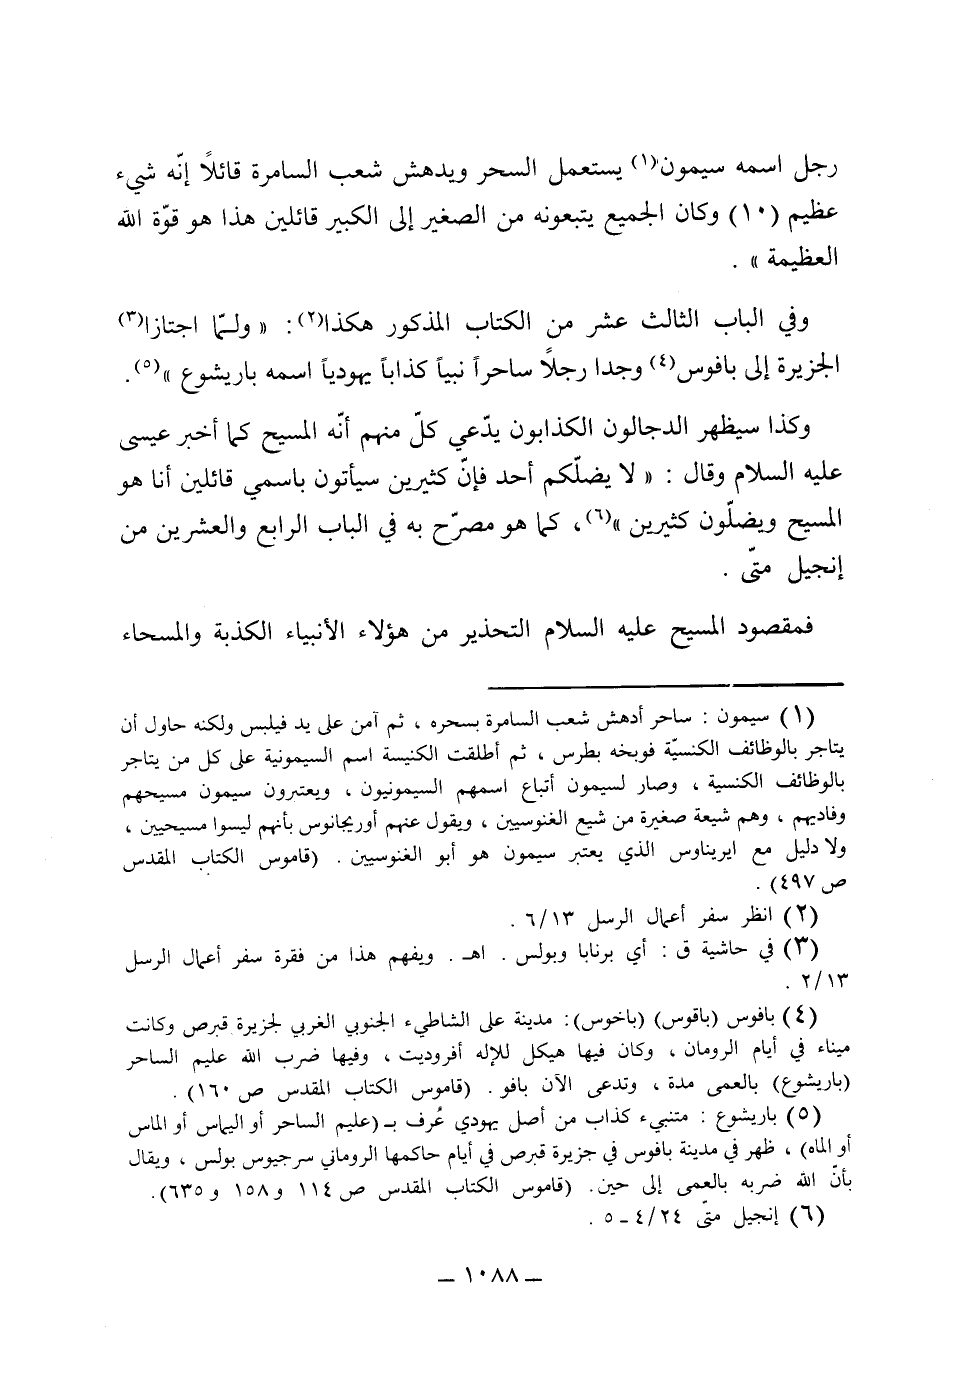 رجل اسمه سيمون(١) يستعمل السحر ويدهش شعب السامرة قائلاً إنّه شيء
عظيم (١٠) وكان الجميع يتبعونه من الصغير إلى الكبير قائلين هذا هو قوّة الله
العظيمة » .
وفي الباب الثالث عشر من الكتاب المذكور هكذا(٢): « ولـمّا اجتازا(٣)
الجزيرة إلى بافوس(٤) وجدا رجلاً ساحراً نبياً كذاباً يهودياً اسمه باريشوع »(٥).
وكذا سيظهر الدجالون الكذابون يدّعي كلّ منهم أنّه المسيح كما أخبر عيسى
عليه السلام وقال : « لا يضلّكم أحد فإنّ كثيرين سيأتون باسمي قائلين أنا هو
المسيح ويضلّون كثيرين »(٦)، كما هو مصرّح به في الباب الرابع والعشرين من
إنجيل متّى .
فمقصود المسيح عليه السلام التحذير من هؤلاء الأنبياء الكذبة والمسحاء
(١) سيمون : ساحر أدهش شعب السامرة بسحره ، ثم آمن على يد فيلبس ولكنه حاول أن
يتاجر بالوظائف الكنسيّة فوبخه بطرس ، ثم أطلقت الكنيسة اسم السيمونية على كل من يتاجر
بالوظائف الكنسية ، وصار لسيمون أتباع اسمهم السيمونيون ، ويعتبرون سيمون مسيحهم
وفاديهم ، وهم شيعة صغيرة من شيع الغنوسيين ، ويقول عنهم أوريجانوس بأنهم ليسوا مسيحيين ،
ولا دليل مع ايريناوس الذي يعتبر سيمون هو أبو الغنوسيين . (قاموس الكتاب المقدس
ص ٤٩٧) .
(٢) انظر سفر أعمال الرسل ٦/١٣ .
(٣) في حاشية ق : أي برنابا وبولس . اهـ . ويفهم هذا من فقرة سفر أعمال الرسل
٢/١٣ .
(٤) بافوس (باقوس) (باخوس): مدينة على الشاطيء الجنوبي الغربي لجزيرة قبرص وكانت
ميناء في أيام الرومان ، وكان فيها هيكل للإله أفروديت ، وفيها ضرب الله عليم الساحر
(باريشوع) بالعمى مدة ، وتدعى الآن بافو . (قاموس الكتاب المقدس ص ١٦٠) .
(٥) باريشوع : متنبيء كذاب من أصل يهودي عُرف بـ (عليم الساحر أو اليماس أو الماس
أو الماه) ، ظهر في مدينة بافوس في جزيرة قبرص في أيام حاكمها الروماني سرجيوس بولس ، ويقال
بأنّ الله ضربه بالعمى إلى حين. (قاموس الكتاب المقدس ص ١١٤ و ١٥٨ و ٦٣٥).
(٦) إنجيل متّى ٤/٢٤ ـ ٥ .
ـ ١٠٨٨ ـ